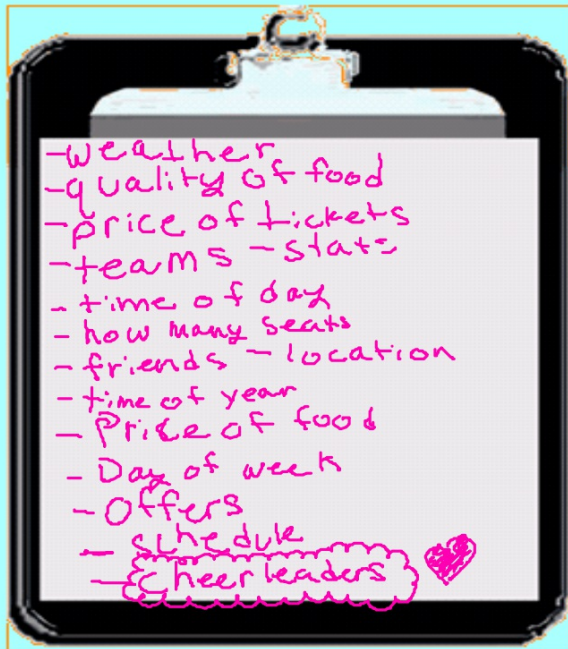 -weather
-quality of food
-price of tickets
-teams -stats
-time of day
-how many seats
-friends -location
-time of year
-Price of food
-Day of week
-Offers
-schedule
-Cheerleaders